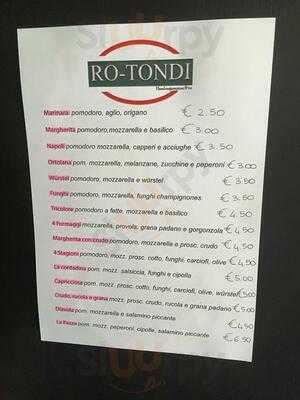 RO-TONDI
Marinara: pomodoro, aglio, origano € 2.50
Margherita pomodoro, mozzarella e basilico € 3.00
Napoli pomodoro mozzarella, capperi e acciughe € 3.50
Ortolana pom. mozzarella, melanzane, zucchine e peperoni € 3.00
Würstel pomodoro, mozzarella e würstel € 3.50
Funghi pomodoro, mozzarella, funghi champignones € 3.50
Tricolore pomodoro a fette, mozzarella e basilico € 4.50
4 Formaggi mozzarella, provola, grana padano e gorgonzola € 4.50
Margherita con crudo pomodoro, mozzarella e prosc. crudo € 4,50
4 Stagioni pom. mozz. prosc. cotto, funghi, carciofi, olive € 4,50
La contadina pom. mozz. salsiccia, funghi e cipolla € 5.00
Capricciosa pom. mozz. prosc. cotto, funghi, carciofi, olive, würstel € 5.00
Crudo, rucola e grana mozz. prosc. crudo, rucola e grana padano € 5.00
Diavola pom. mozzarella e salamino piccante € 4,50
La Pazza pom. mozz. peperoni, cipolle, salamino piccante € 6.50